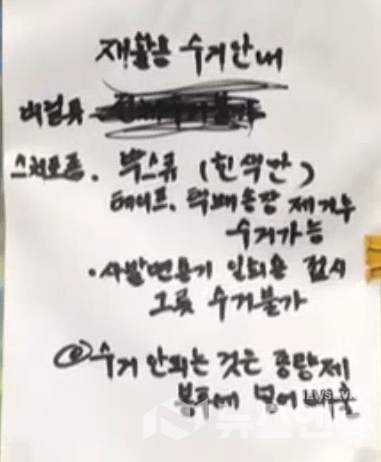 재활용 수거안내
비닐류
스치로폼. 박스류 (흰색만)
테이프. 택배송장 제거후
수거가능
·사발면용기 일회용 접시
그릇 수거불가
@수거 안되는 것은 종량제
봉투에 넣어 배출
뉴스